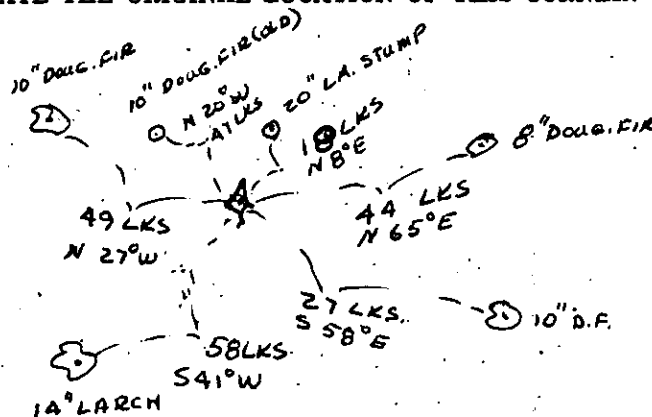 10" DOUG. FIR
10" DOUG. FIR (OLD)
N 20° W
47 LKS
20" LA. STUMP
18 LKS
N 8° E
8" DOUG. FIR
49 LKS
N 27° W
44 LKS
N 65° E
27 LKS.
S 58° E
10" D.F.
58 LKS.
S 41° W
14" LARCH